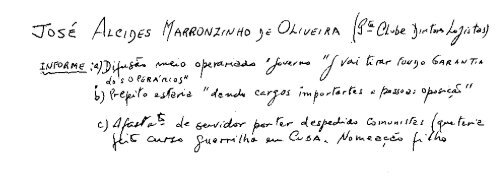 JOSÉ ALCIDES MARRONZINHO DE OLIVEIRA (Pte Clube Diretores Lojistas)
INFORME: a) Difusão meio operariado "governo" vai tirar FUNDO GARANTIA
dos OPERÁRIOS"
b) Prefeito estaria "dando cargos importantes a pessoas oposição"
c) Afastatº de servidor por ter despedido comunistas (que teria
feito curso guerrilha em CUBA. Nomeação filho